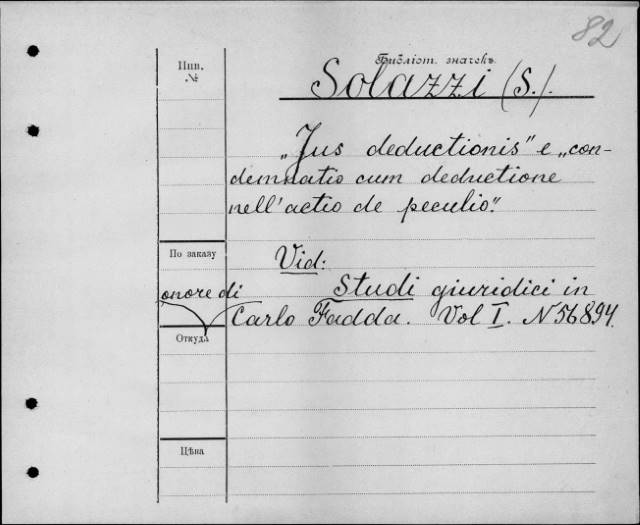 82
Инв.
№
Библіот. значекъ
Solazzi (S.).
„Jus deductionis" e „con-
demnatio cum deductione
nell'actio de peculio".
По заказу
Vid:
onore di
Studi giuridici in
Carlo Fadda. Vol I. N 56894.
Откуда
Цѣна